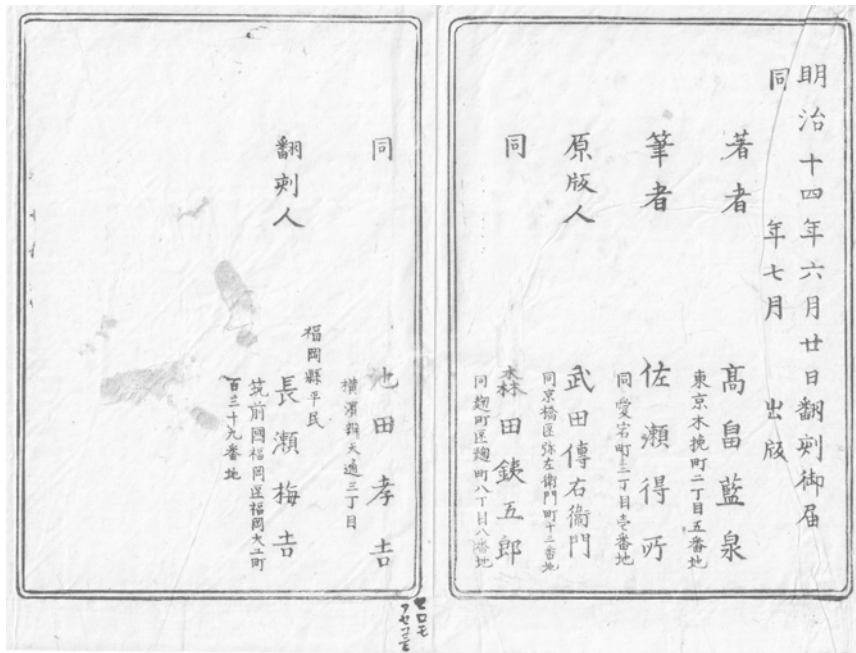 明治十四年六月廿日翻刻御届
同年七月出版
著者 髙畠藍泉
東京木挽町二丁目五番地
筆者 佐瀬得所
同愛宕町三丁目壱番地
原版人 武田傳右衞門
同京橋區弥左衞門町十三番地
同 森田鉄五郎
同麹町區麹町八丁目八番地
同 池田孝吉
横濱辨天通三丁目
翻刻人
福岡縣平民
長瀬梅吉
筑前國福岡區福岡大工町
百三十九番地